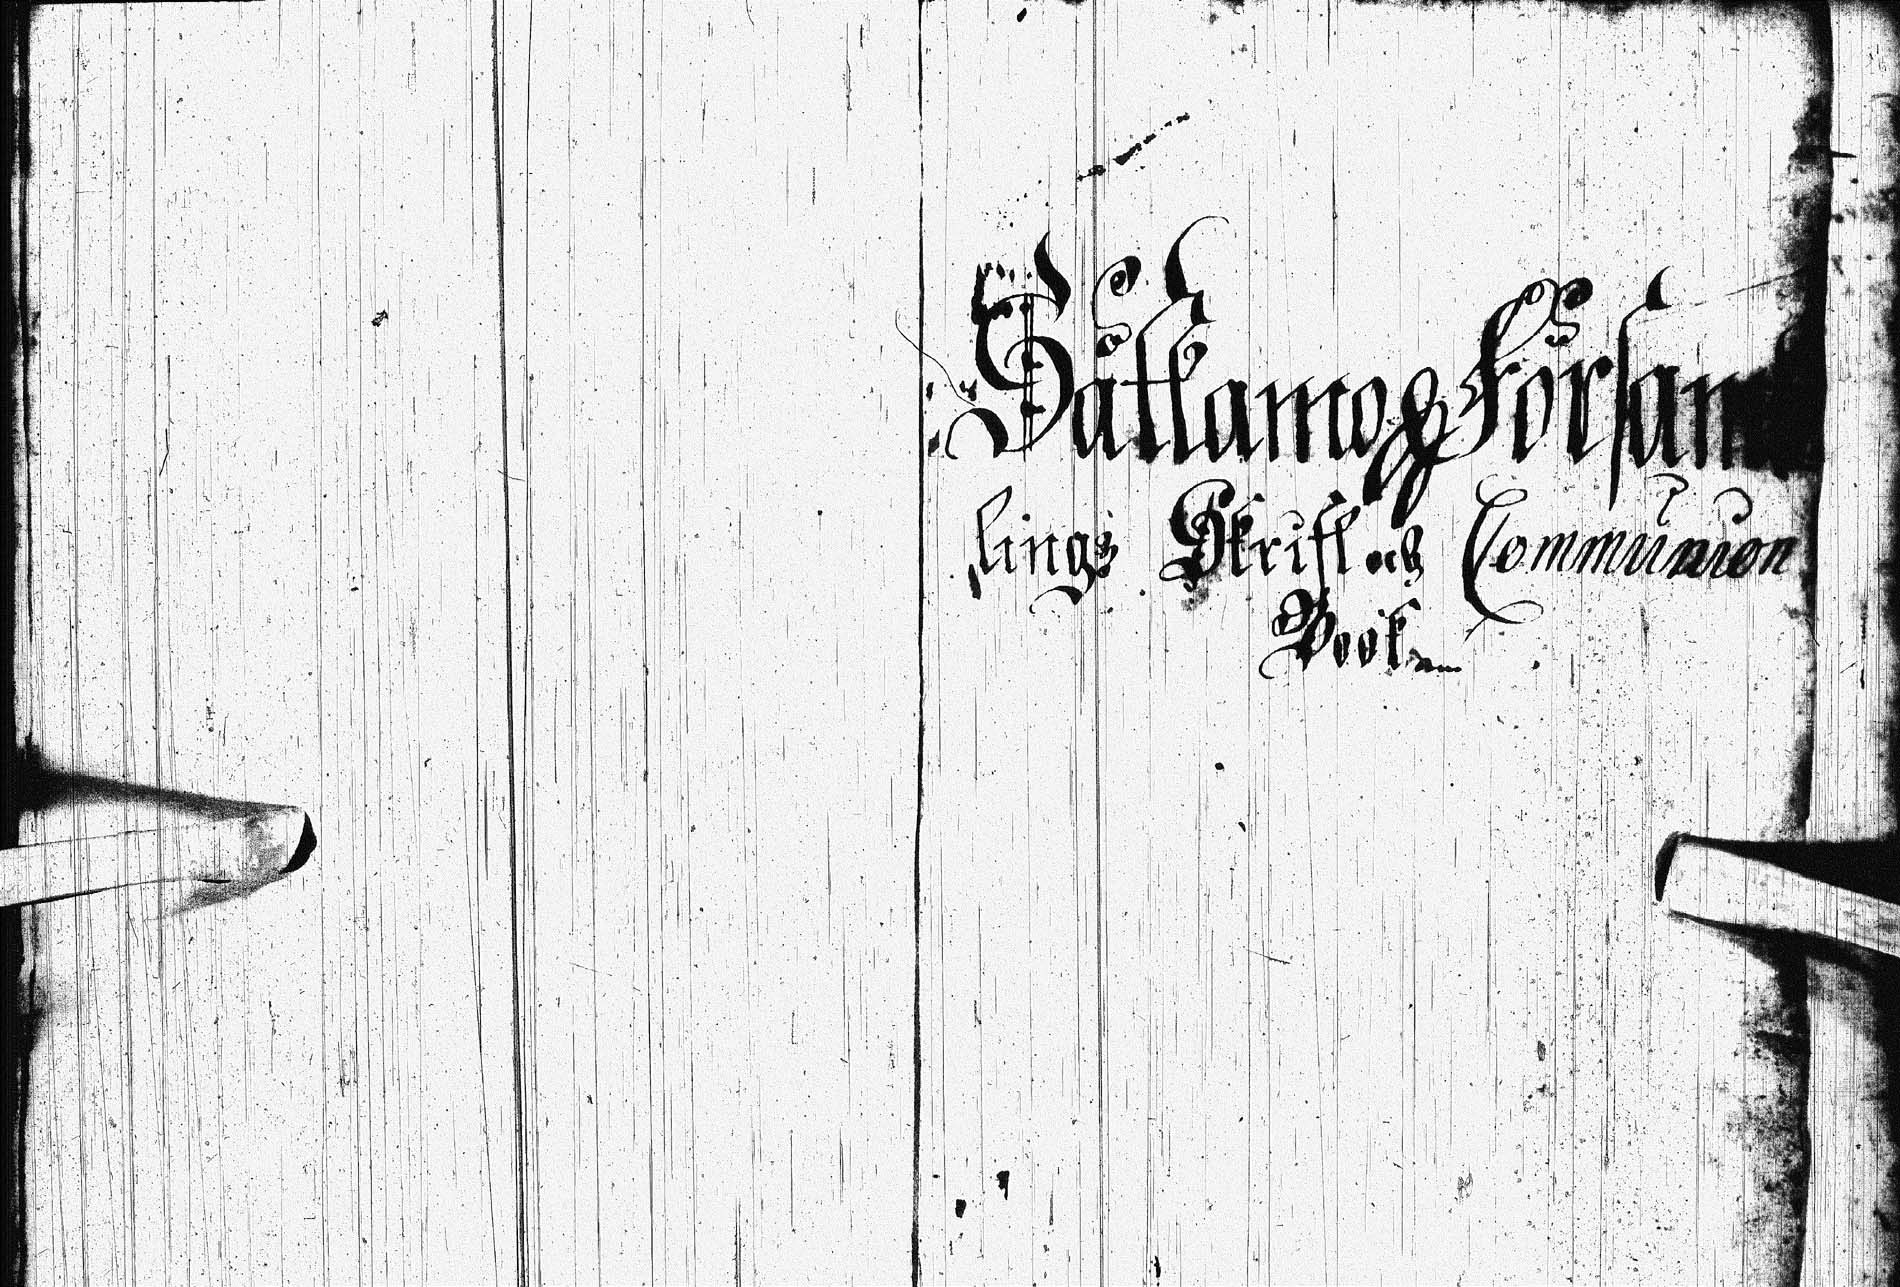 Såtkamo Försam
lings Skrift och Communion
Book